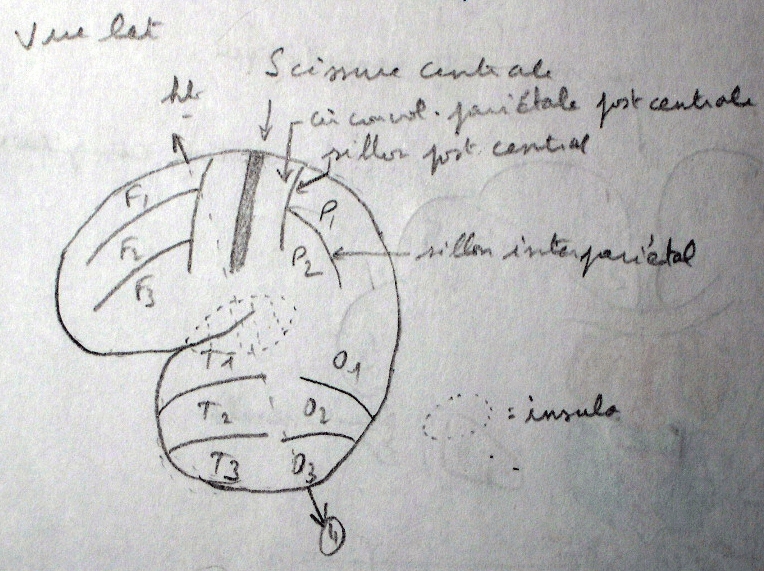 Vue lat
Scissure centrale
circonvol. pariétale post centrale
sillon post central
F1
P1
F2
P2
sillon interpariétal
F3
T1
O1
T2
O2
= insula
T3
O3